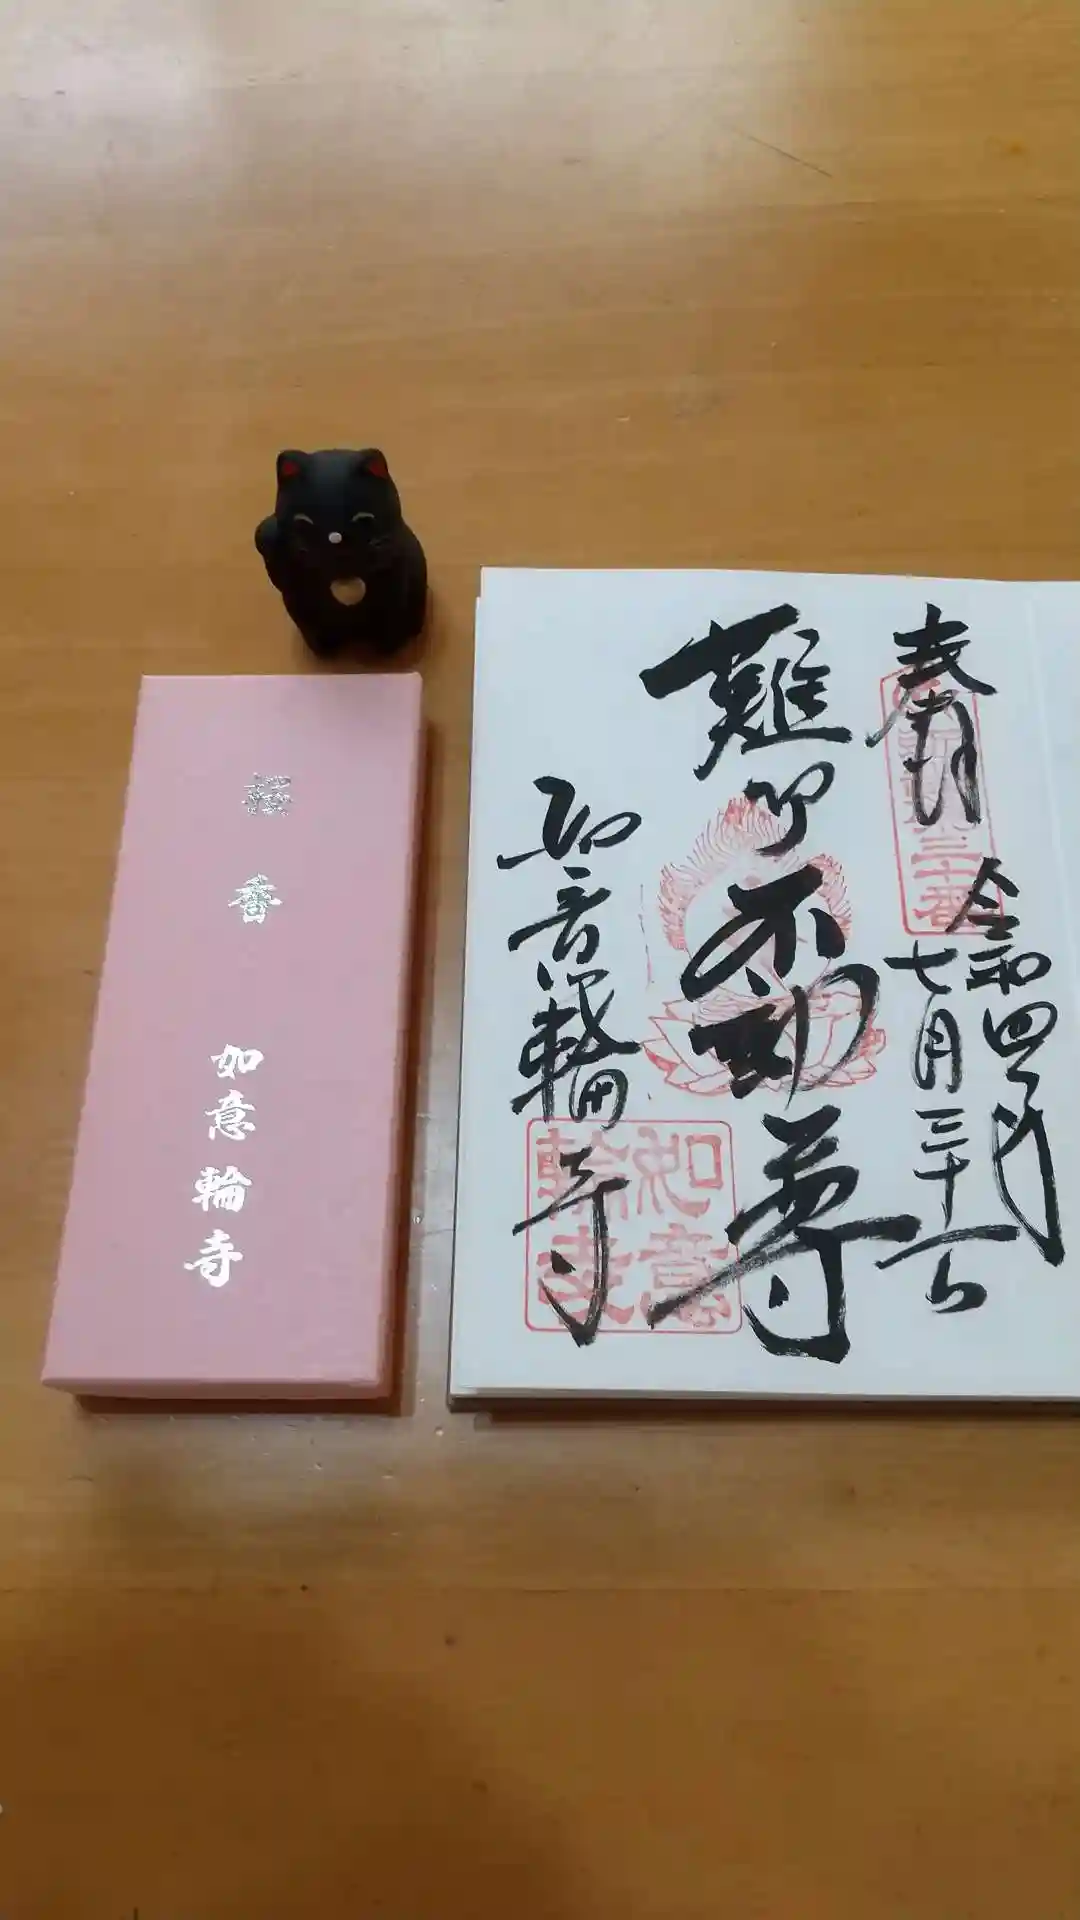 桜香
如意輪寺
奉拝
三十番
令和四年
七月三十一日
難切不動尊
如意輪寺
如意輪寺